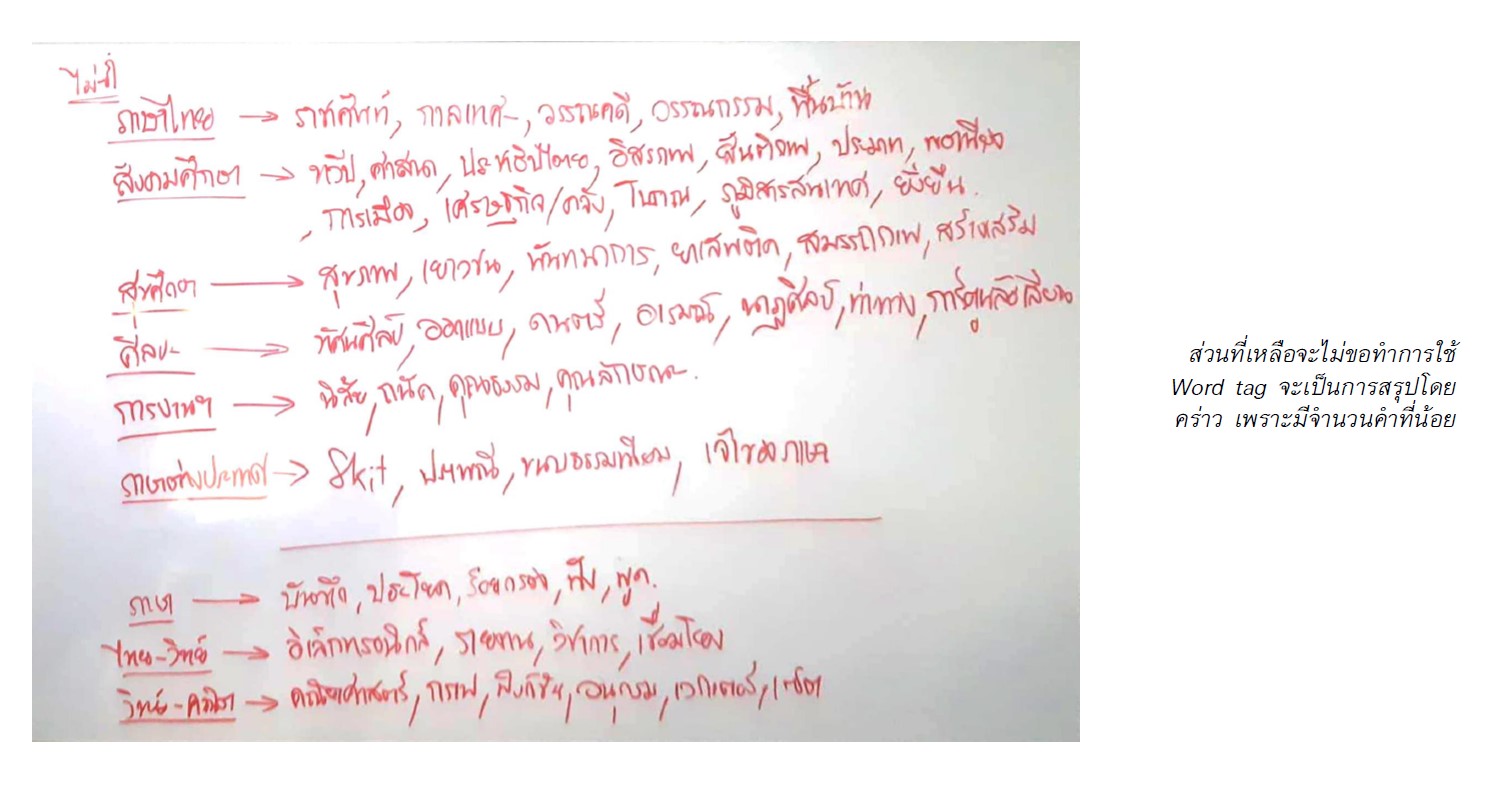 ไม่ซ้ำ
ภาษาไทย → ราชศัพท์, กาลเทศะ, วรรณคดี, วรรณกรรม, พื้นบ้าน
สังคมศึกษา → ทวีป, ศาสนา, ประชาธิปไตย, อิสรภาพ, สันติภาพ, ประเภท, พอเพียง
, การเมือง, เศรษฐกิจ/คลัง, โบราณ, ภูมิสารสนเทศ, ยั่งยืน.
สุขศึกษา → สุขภาพ, เยาวชน, นันทนาการ, ยาเสพติด, สมรรถภาพ, สร้างเสริม
ศิลปะ → ทัศนศิลป์, ออกแบบ, ดนตรี, อารมณ์, นาฏศิลป์, ท่าทาง,
การงานฯ → นิสัย, ถนัด, คุณธรรม, คุณลักษณะ.
ภาษาต่างประเทศ → Skit, ประเพณี, ขนบธรรมเนียม, เจ้าของภาษา
ภาษา → บันเทิง, ประโยค, ร้อยกรอง, ฟัง, พูด.
ไทย-วิทย์ → อิเล็กทรอนิกส์, รายงาน, วิชาการ, เชื่อมโยง
วิทย์-คณิต → คณิตศาสตร์, กราฟ, ฟังก์ชัน, อนุกรม, เวกเตอร์, เซต
ส่วนที่เหลือจะไม่ขอทำการใช้
Word tag จะเป็นการสรุปโดย
คร่าว เพราะมีจำนวนคำที่น้อย